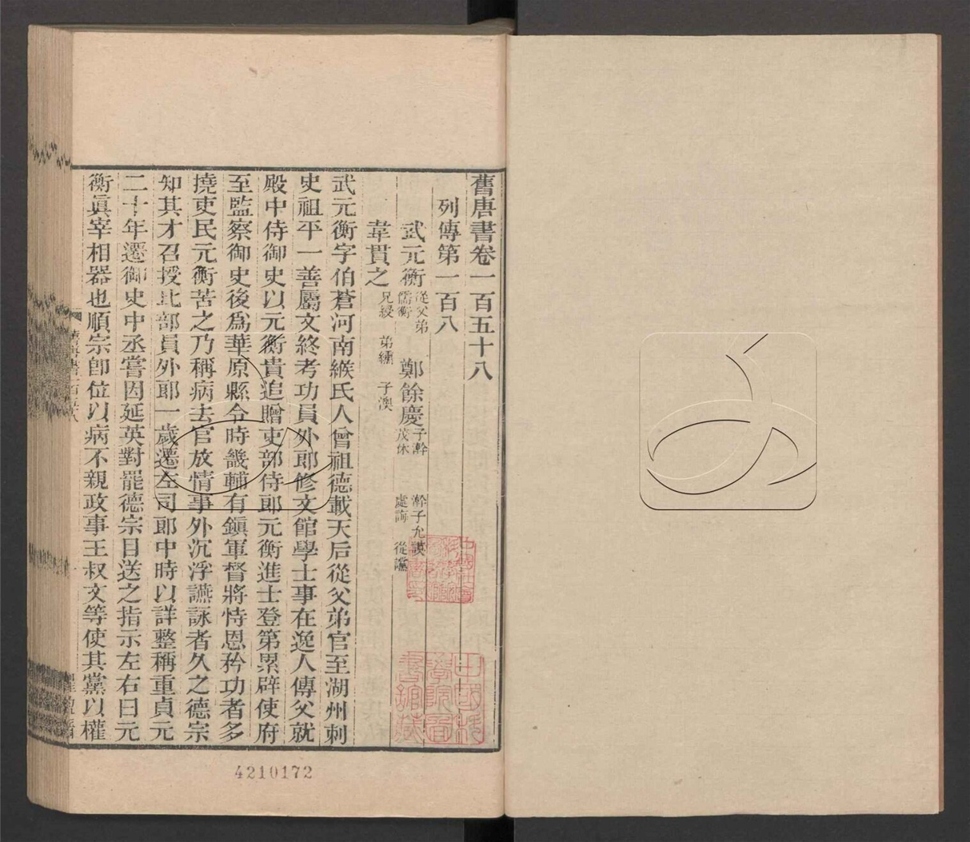 舊唐書卷一百五十八
列傳第一百八
武元衡 從父弟儒衡 鄭餘慶 子澣 茂休 澣子允謨 處誨 從讜
韋貫之 兄綬 弟纁 子澳
武元衡字伯蒼河南緱氏人曾祖德載天后從父弟官至湖州刺
史祖平一善屬文終考功員外郎修文館學士事在逸人傳父就
殿中侍御史以元衡貴追贈吏部侍郎元衡進士登第累辟使府
至監察御史後爲華原縣令時畿輔有鎭軍督將恃恩矜功者多
撓吏民元衡苦之乃稱病去官放情事外沉浮讌詠者久之德宗
知其才召授比部員外郎一歲遷左司郎中時以詳整稱重貞元
二十年遷御史中丞嘗因延英對罷德宗目送之指示左右曰元
衡眞宰相器也順宗卽位以病不親政事王叔文等使其黨以權
4210172